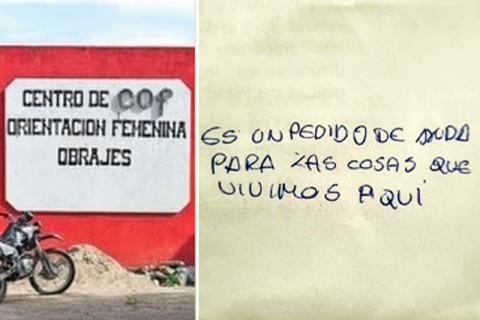 CENTRO DE COF
ORIENTACION FEMENINA
OBRAJES
ES UN PEDIDO DE AUDA
PARA LAS COSAS QUE
VIVIMOS AQUÍ